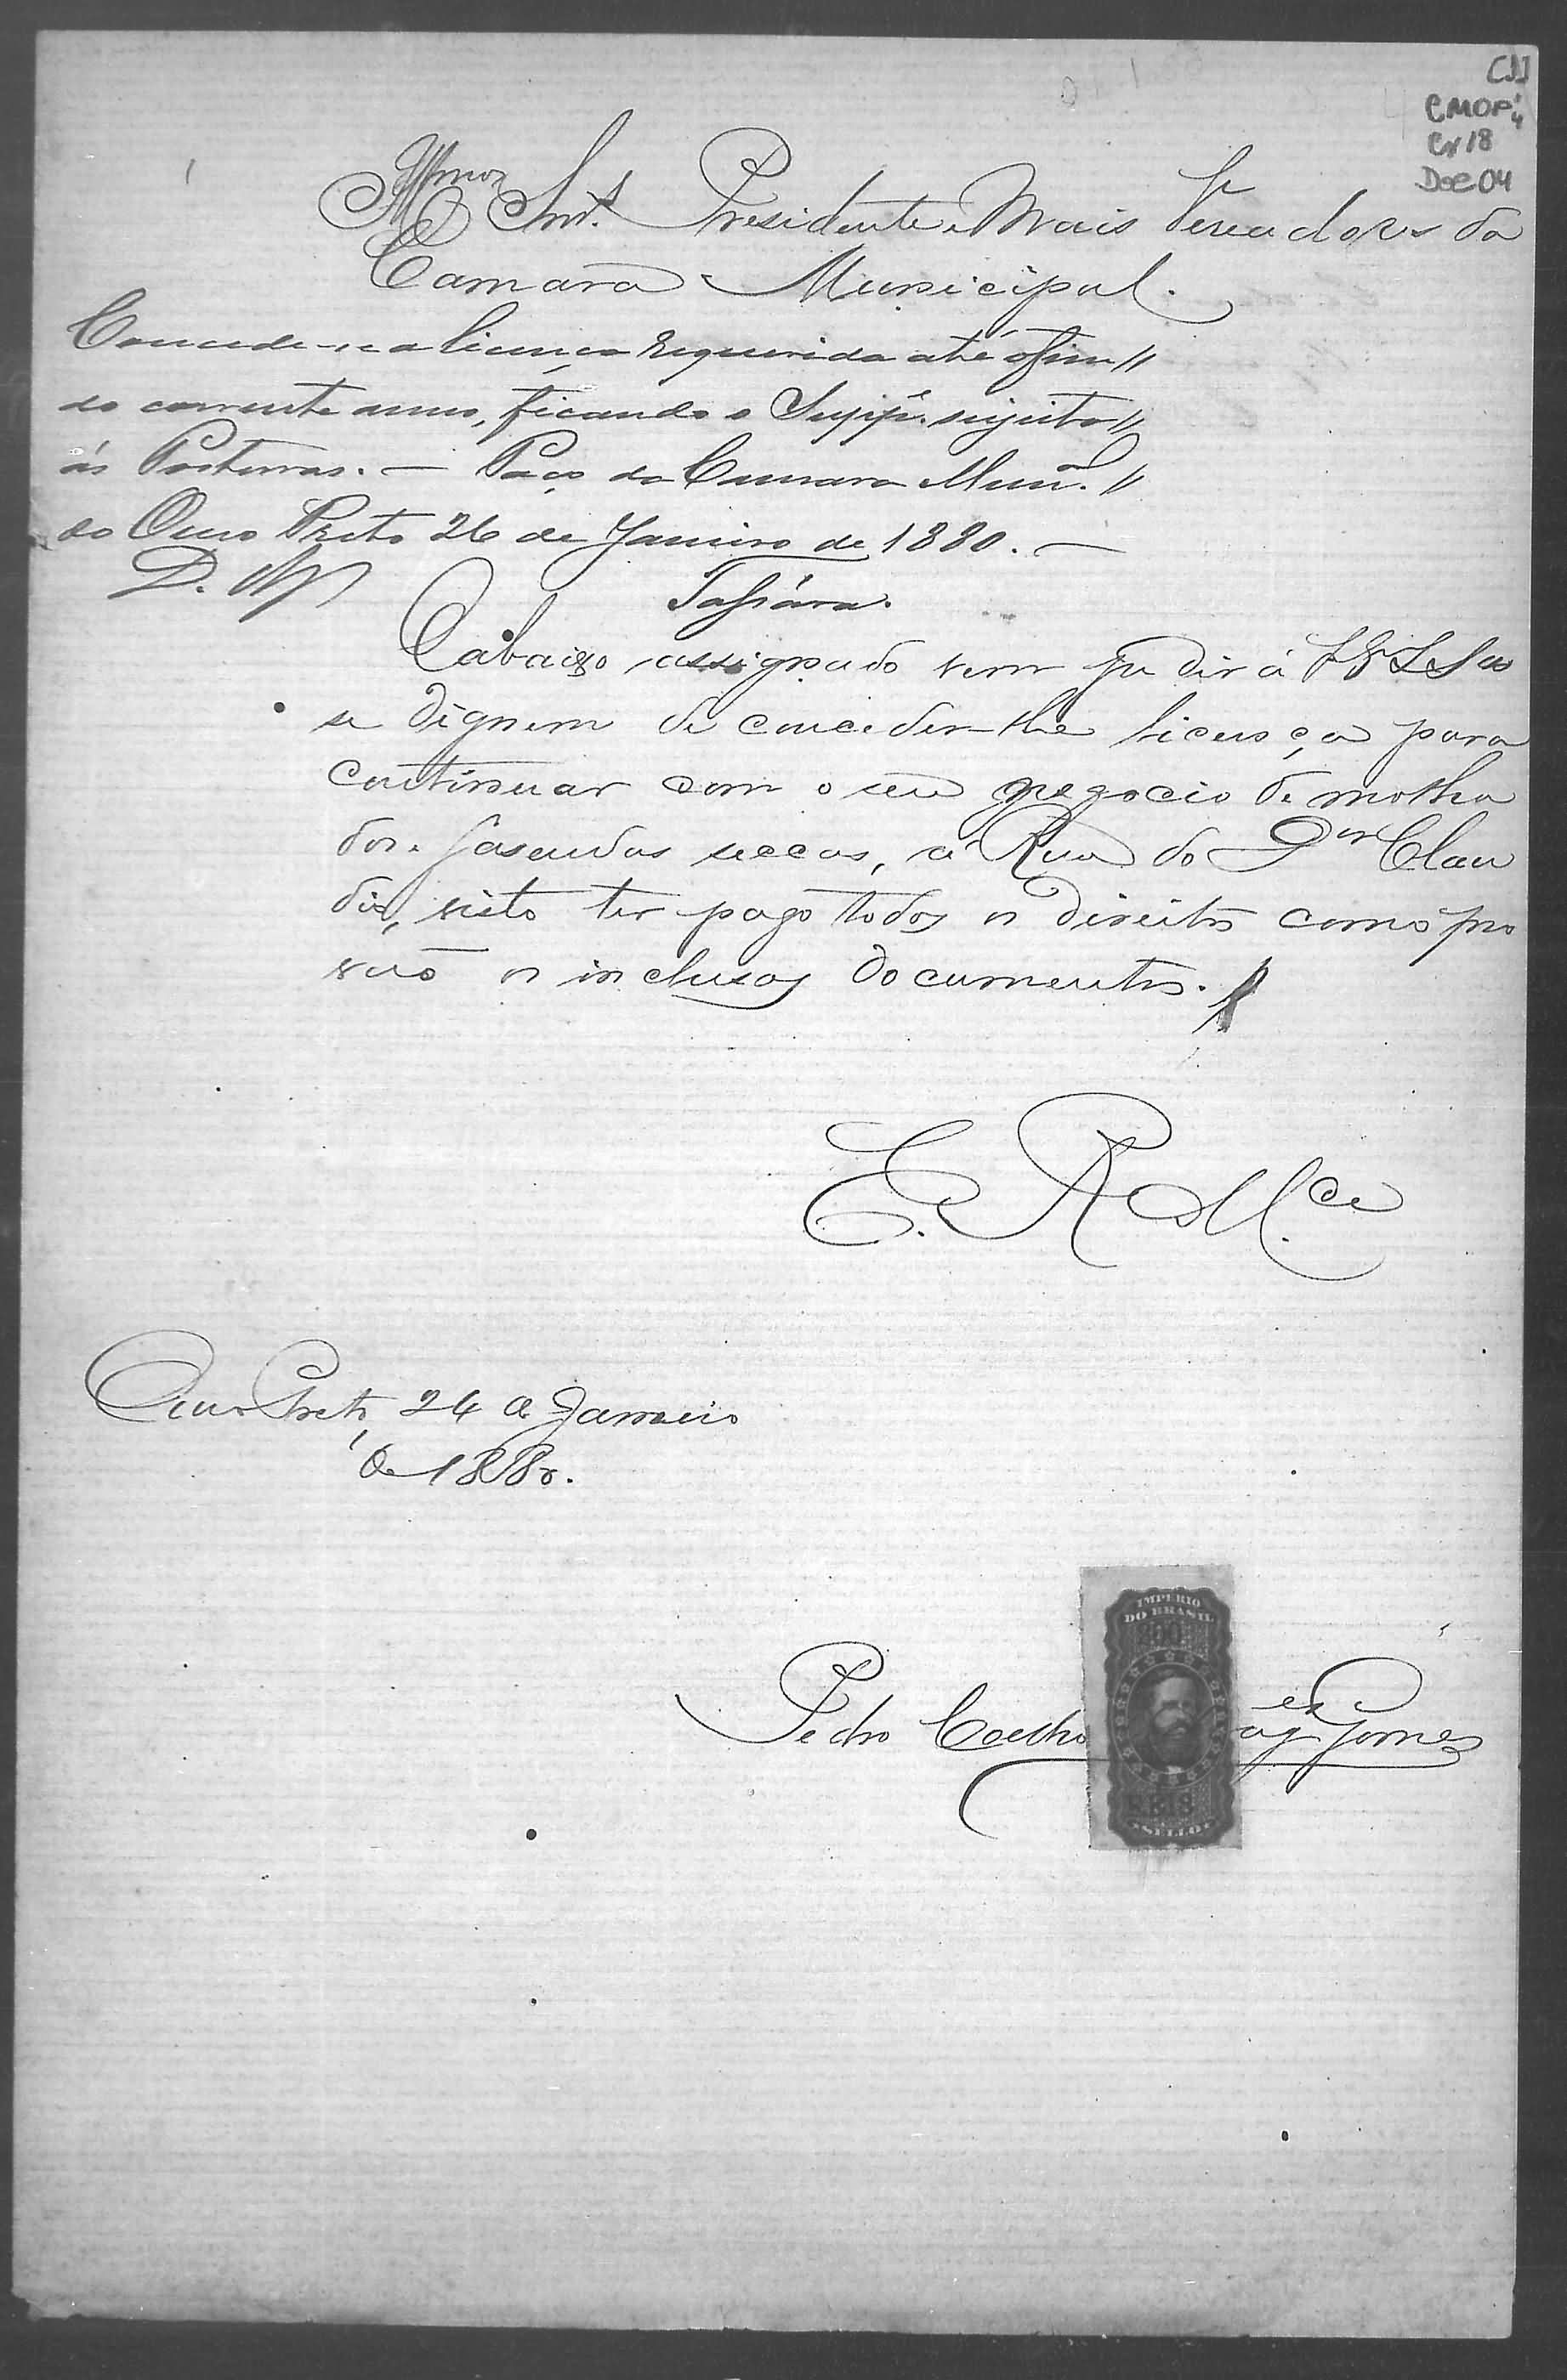 CMOP
Cx 18
Doc 04
Illmos Snrs. Presidente e Mais Vereadores da
Camara Municipal.
Concede-se a licença requerida até o fim //
do corrente anno, ficando o Suppe. sujeito //
ás Posturas. — Paço da Camara Mun. //
do Ouro Preto 26 de Janeiro de 1880. —
Tassára.
O abaixo assignado vem pedir á
se dignem de conceder-lhe licença para
continuar com o seu negocio de molha
dos e fasendas seccas, á Rua do Dor Clau
dio, visto ter pago todos os direitos como pro
vão os inclusos documentos.
E. R. Mce
Ouro Preto, 24 de Janeiro
de 1880.
IMPERIO
DO BRASIL
200
SELLO
Pedro Coelho Gomes